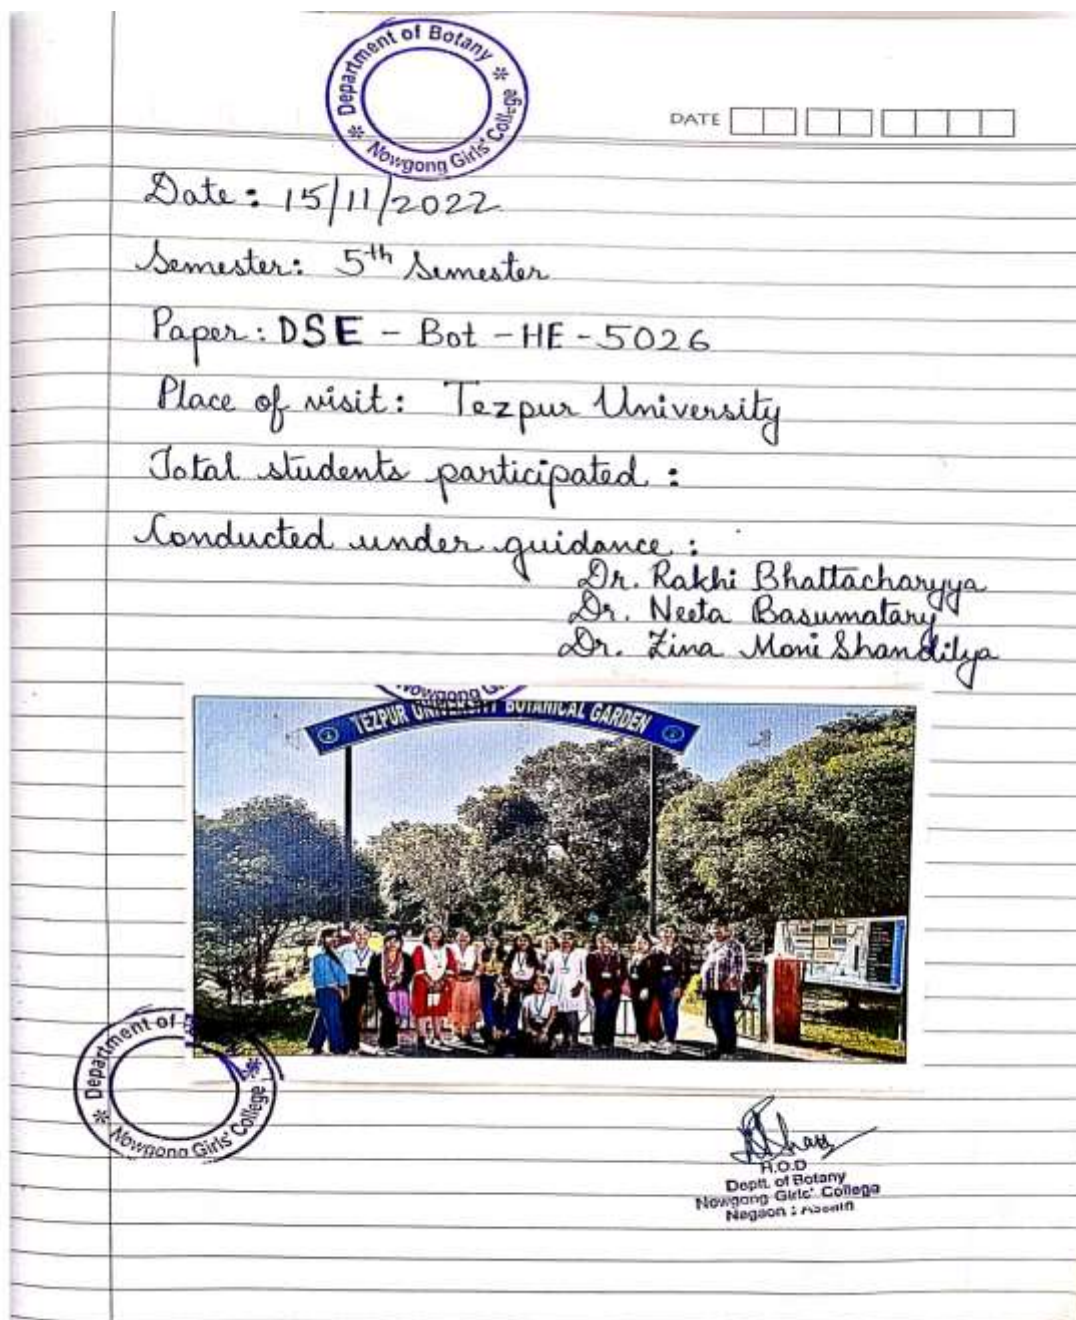 Department of Botany
Nowgong Girls' College
DATE
Date: 15/11/2022
Semester: 5th Semester
Paper: DSE - Bot - HE - 5026
Place of visit: Tezpur University
Total students participated :
Conducted under guidance :
Dr. Rakhi Bhattacharyya
Dr. Neeta Basumatary
Dr. Zina Moni Shandilya
Nowgong
TEZPUR UNIVERSITY BOTANICAL GARDEN
Department of
Nowgong Girls' College
H.O.D
Deptt. of Botany
Nowgong Girls' College
Nagaon : Assam